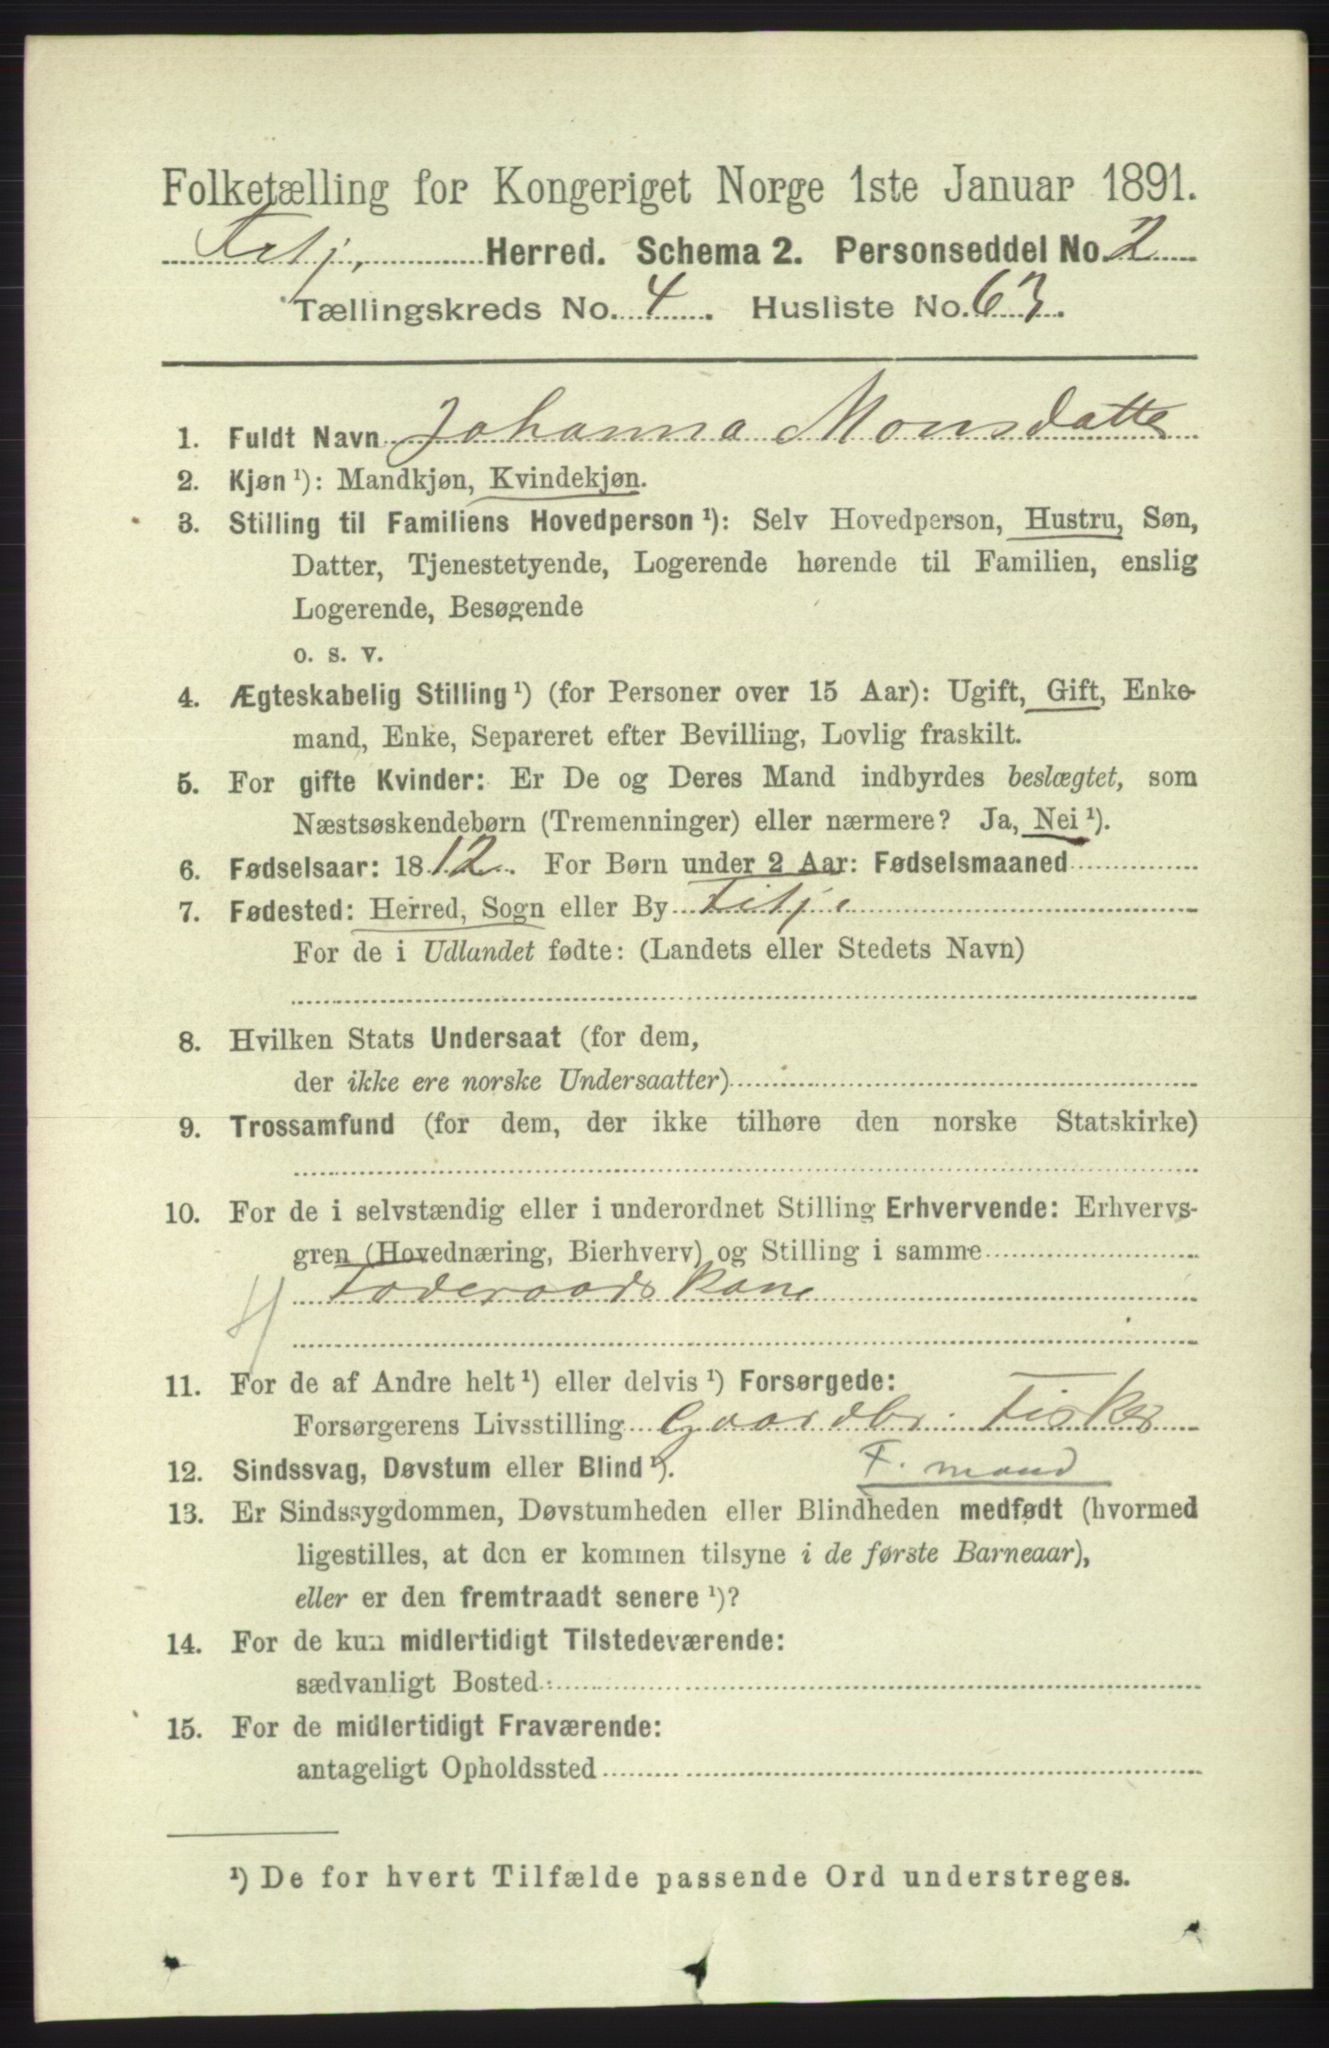 Folketælling for Kongeriget Norge 1ste Januar 1891.
Fitj. Herred. Schema 2. Personseddel No. 2
Tællingskreds No. 4. Husliste No. 63.
1. Fuldt Navn Johanna Monsdatte
2. Kjøn ¹): Mandkjøn, Kvindekjøn.
3. Stilling til Familiens Hovedperson ¹): Selv Hovedperson, Hustru, Søn,
Datter, Tjenestetyende, Logerende hørende til Familien, enslig
Logerende, Besøgende
o. s. v.
4. Ægteskabelig Stilling ¹) (for Personer over 15 Aar): Ugift, Gift, Enke-
mand, Enke, Separeret efter Bevilling, Lovlig fraskilt.
5. For gifte Kvinder: Er De og Deres Mand indbyrdes beslægtet, som
Næstsøskendebørn (Tremenninger) eller nærmere? Ja, Nei ¹).
6. Fødselsaar: 1812. For Børn under 2 Aar: Fødselsmaaned
7. Fødested: Herred, Sogn eller By Fitje
For de i Udlandet fødte: (Landets eller Stedets Navn)
8. Hvilken Stats Undersaat (for dem,
der ikke ere norske Undersaatter)
9. Trossamfund (for dem, der ikke tilhøre den norske Statskirke)
10. For de i selvstændig eller i underordnet Stilling Erhvervende: Erhvervs-
gren (Hovednæring, Bierhverv) og Stilling i samme
Foderaads Kone
11. For de af Andre helt ¹) eller delvis ¹) Forsørgede:
Forsørgerens Livsstilling Gaardbr. Fisker
12. Sindssvag, Døvstum eller Blind ¹). F. mand
13. Er Sindssygdommen, Døvstumheden eller Blindheden medfødt (hvormed
ligestilles, at den er kommen tilsyne i de første Barneaar),
eller er den fremtraadt senere ¹)?
14. For de kun midlertidigt Tilstedeværende:
sædvanligt Bosted:
15. For de midlertidigt Fraværende:
antageligt Opholdssted
¹) De for hvert Tilfælde passende Ord understreges.